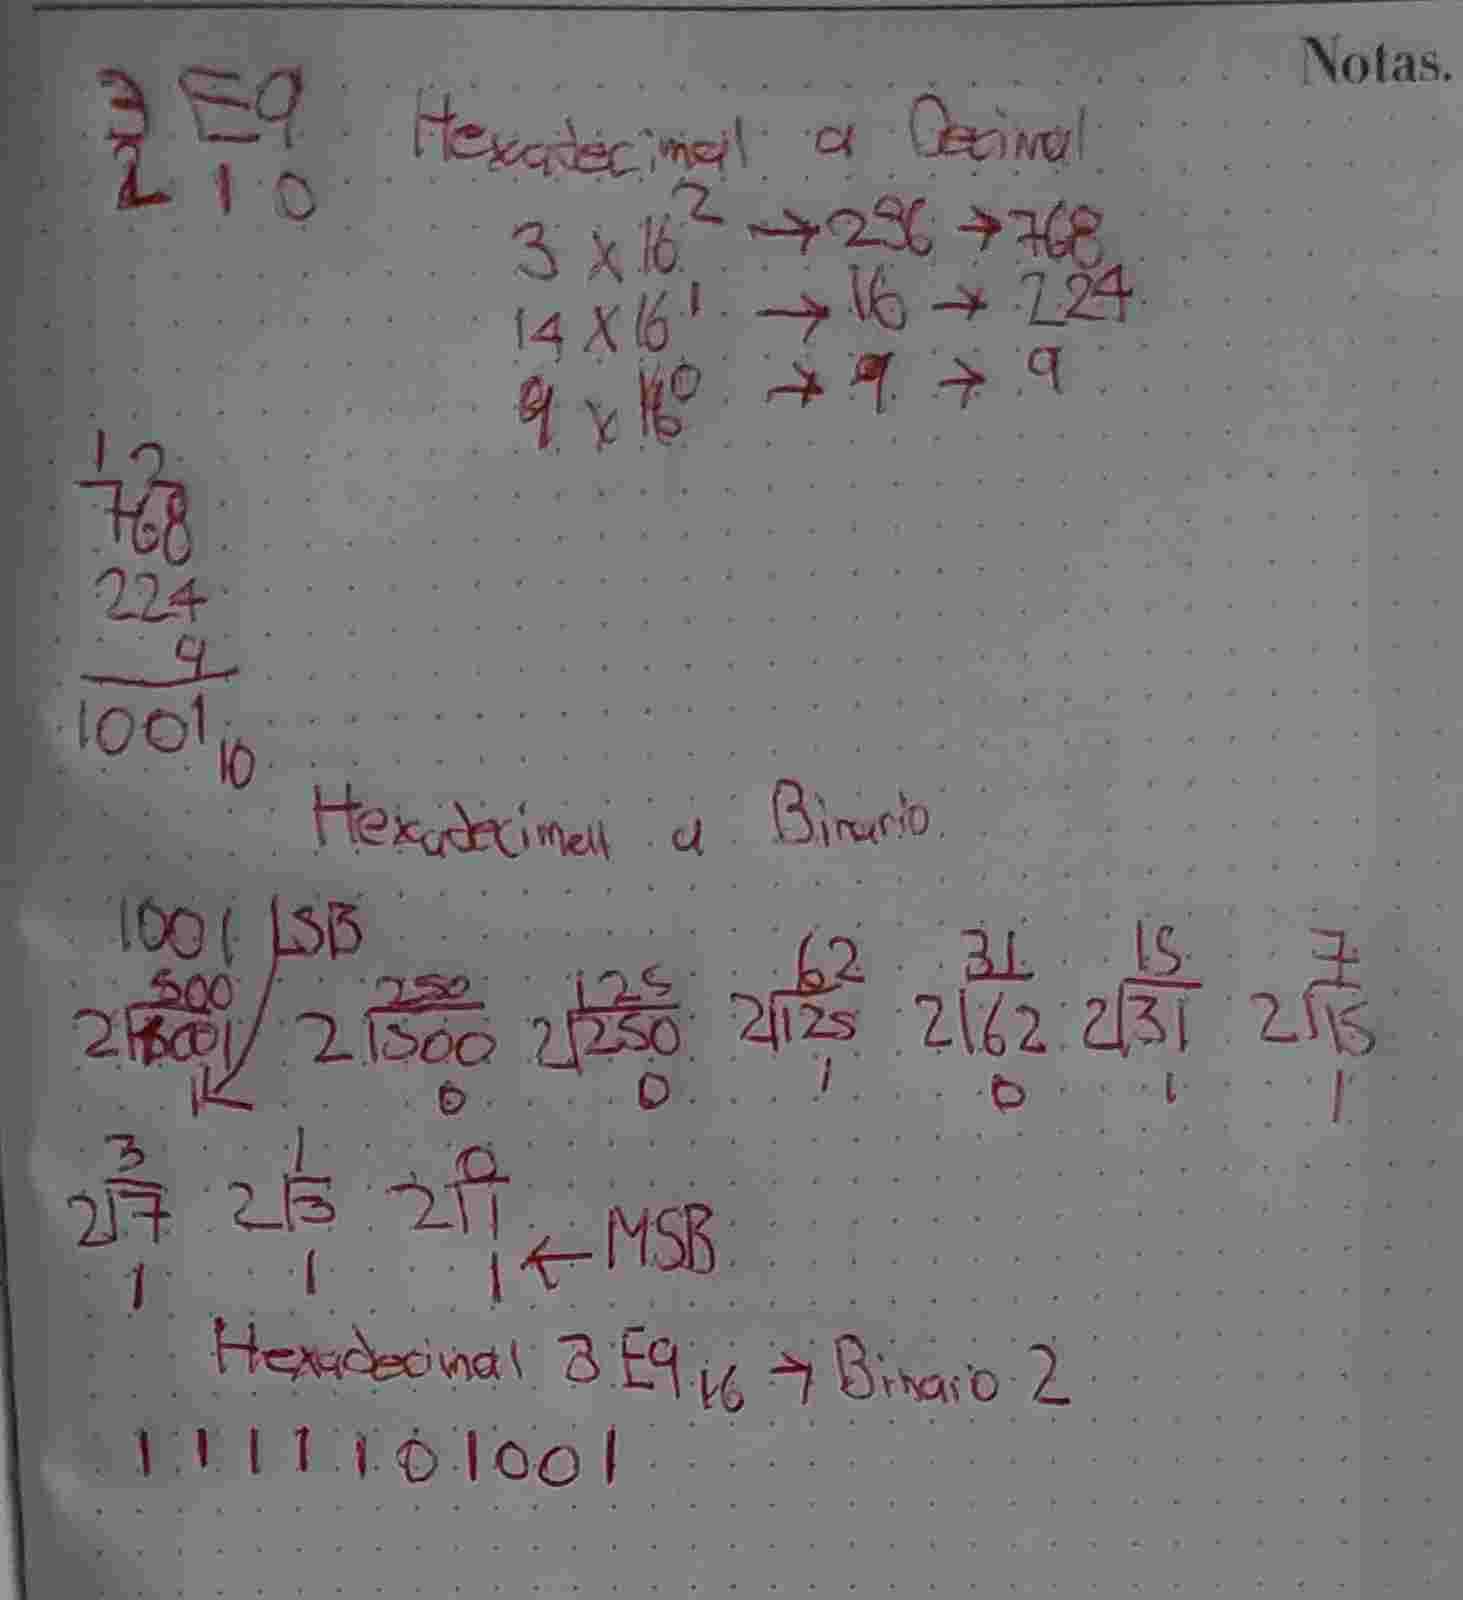 Notas.
3 E9
2 1 0
Hexadecimal a Decimal
3 x 16² → 256 → 768
14 x 16¹ → 16 → 224
9 x 16⁰ → 9 → 9
1 2
768
224
9
1001₁₀
Hexadecimal a Binario
1001 LSB
500 250 125 62 31 15 7
2 1001 2 500 2 250 2 125 2 62 2 31 2 15
1 0 0 1 0 1 1
3 1 0
2 7 2 3 2 1
1 1 1 ← MSB
Hexadecimal 3E9₁₆ → Binario 2
1111101001